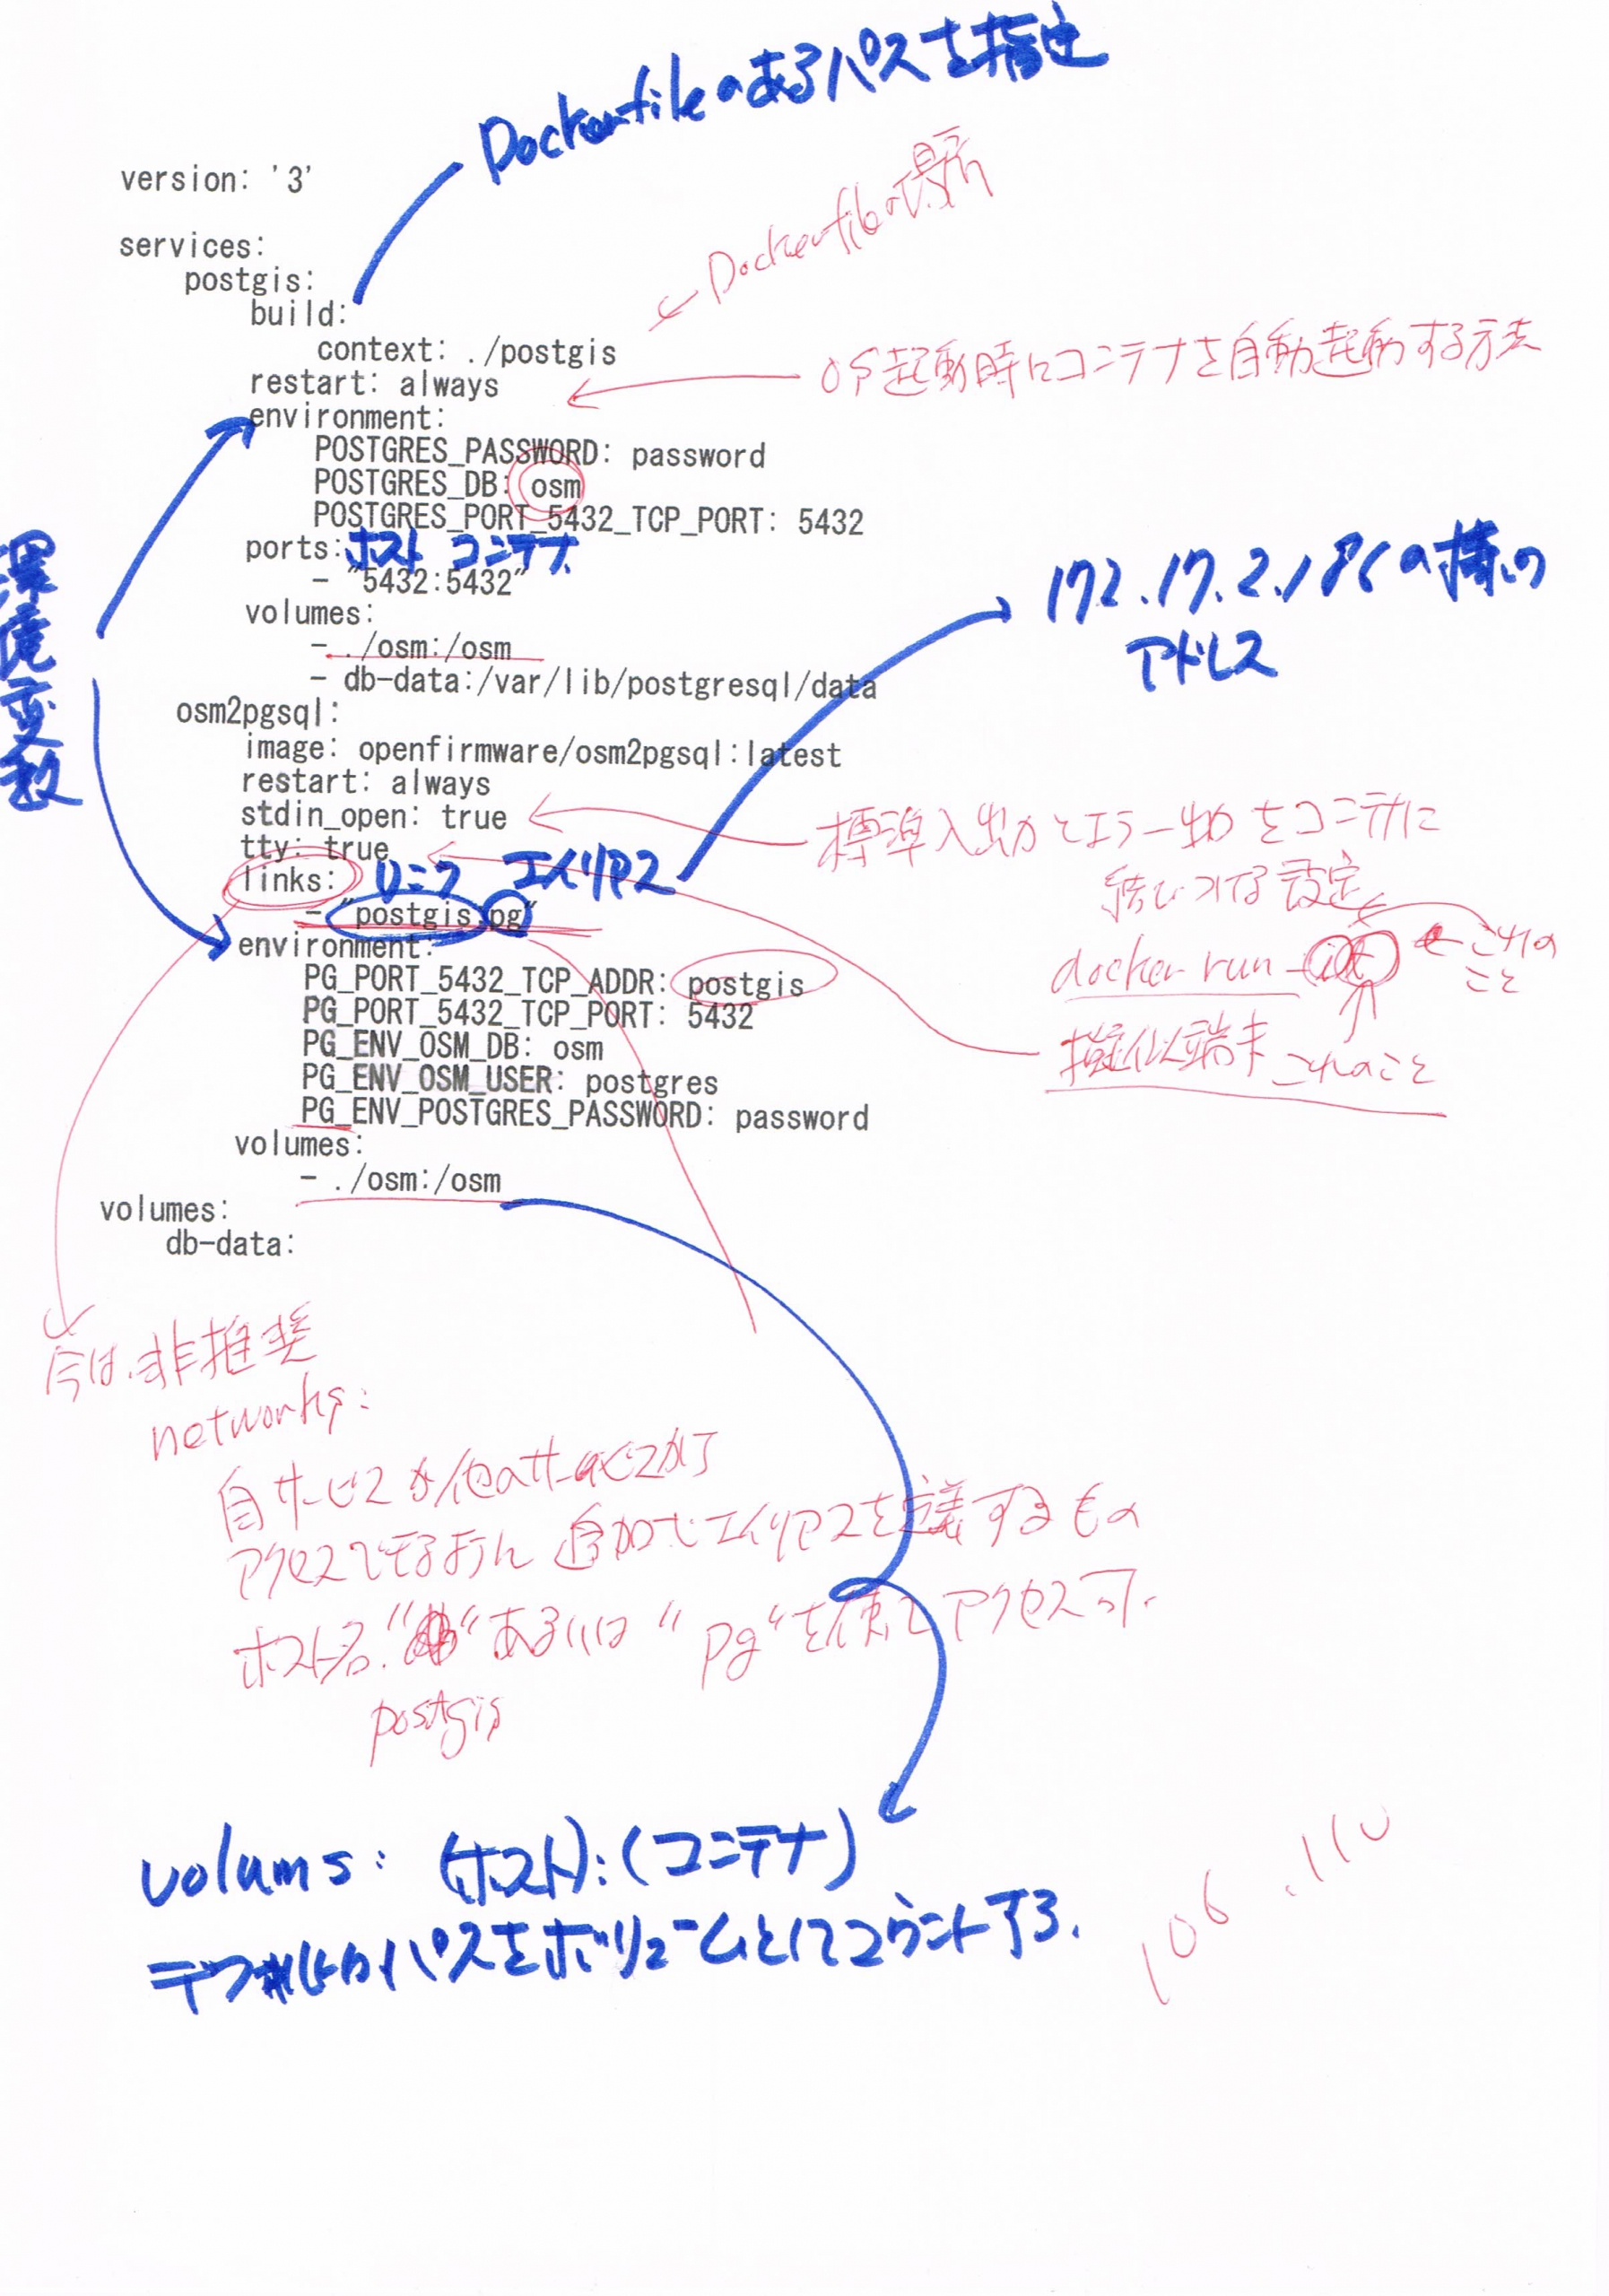 Dockerfileのあるパスを指定
version: '3'
Dockerfileの場所
services:
postgis:
build:
context: ./postgis
OS起動時にコンテナを自動起動する方法
restart: always
environment:
POSTGRES_PASSWORD: password
POSTGRES_DB: osm
POSTGRES_PORT_5432_TCP_PORT: 5432
ports:
ホスト コンテナ
- "5432:5432"
環境変数
volumes:
172.17.2.
アドレス
- ./osm:/osm
- db-data:/var/lib/postgresql/data
osm2pgsql:
image: openfirmware/osm2pgsql:latest
restart: always
stdin_open: true
標準入出力とエラー出力をコンテナに
結びつける設定
tty: true
links:
リンク エイリアス
- "postgis:pg"
environment:
docker run -it
これのこと
PG_PORT_5432_TCP_ADDR: postgis
PG_PORT_5432_TCP_PORT: 5432
PG_ENV_OSM_DB: osm
擬似端末 これのこと
PG_ENV_OSM_USER: postgres
PG_ENV_POSTGRES_PASSWORD: password
volumes:
- ./osm:/osm
volumes:
db-data:
今は、非推奨
networks:
自サービスが他のサービスから
アクセスできるように 追加でエイリアスを定義するもの
ホスト名 " " あるいは "pg" を使ってアクセス可.
postgis
volums: (ホスト):(コンテナ)
パスをボリュームとしてマウントする.
106.110